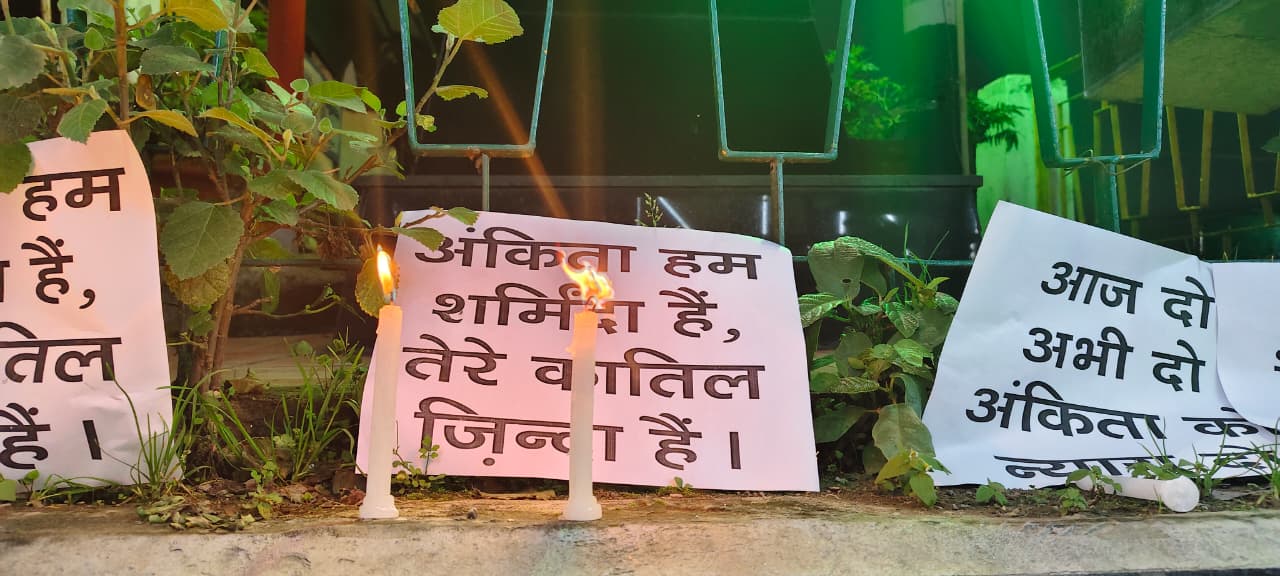 हम
हैं,
तिल
हैं ।
अंकिता हम
शर्मिंदा हैं,
तेरे कातिल
ज़िन्दा हैं ।
आज दो
अभी दो
अंकिता को
न्याय